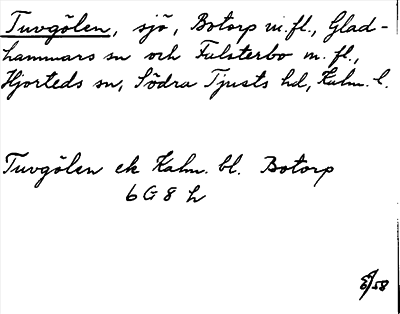 Tuvgölen, sjö, Botorp m.fl., Glad-
hammars sn och Falsterbo m.fl.,
Hjorteds sn, Södra Tjusts hd, Kalm. l.
Tuvgölen ek Kalm. bl. Botorp
6 G 8 h
58